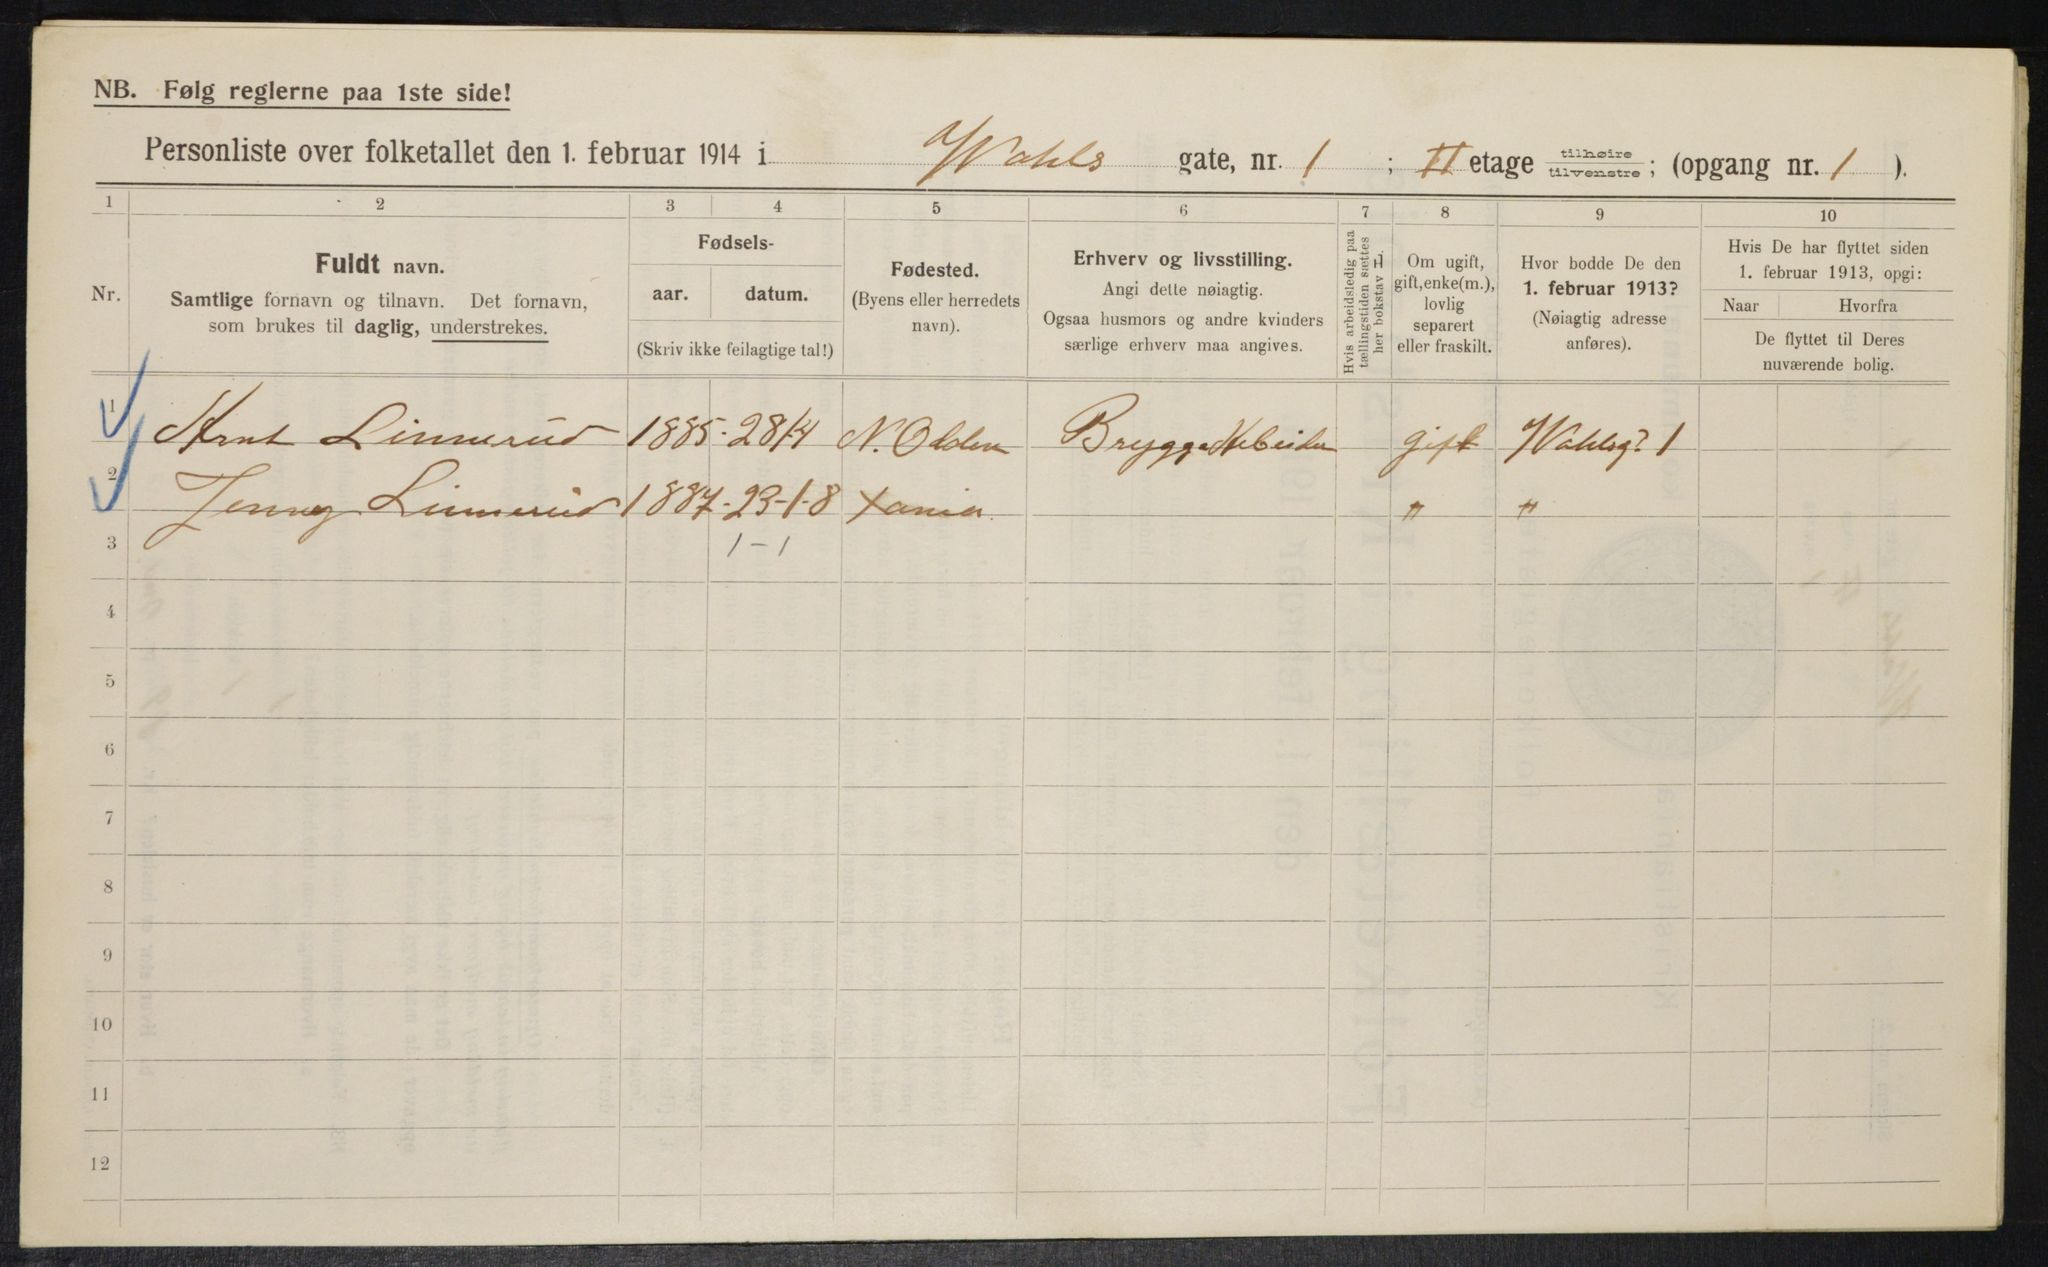 NB. Følg reglerne paa 1ste side!
Personliste over folketallet den 1. februar 1914 i Wahls gate, nr. 1 ; II etage tilhøire tilvenstre ; (opgang nr. 1 ).
1 2 3 4 5 6 7 8 9 10
Nr.
Fuldt navn.
Samtlige fornavn og tilnavn. Det fornavn,
som brukes til daglig, understrekes.
Fødsels-
aar. datum.
(Skriv ikke feilagtige tal!)
Fødested.
(Byens eller herredets
navn).
Erhverv og livsstilling.
Angi dette nøiagtig.
Ogsaa husmors og andre kvinders
særlige erhverv maa angives.
Hvis arbeidsledig paa
tællingstiden sættes
her bokstav L
Om ugift,
gift, enke(m.),
lovlig
separert
eller fraskilt.
Hvor bodde De den
1. februar 1913?
(Nøiagtig adresse
anføres).
Hvis De har flyttet siden
1. februar 1913, opgi:
Naar Hvorfra
De flyttet til Deres
nuværende bolig.
1 Arnt Linnerud 1885 - 28/4 N. Odden Bryggearbeider gift Wahlsg? 1
2 Jenny Linnerud 1887 - 23-1-8 Xania. " "
3 1-1
4
5
6
7
8
9
10
11
12